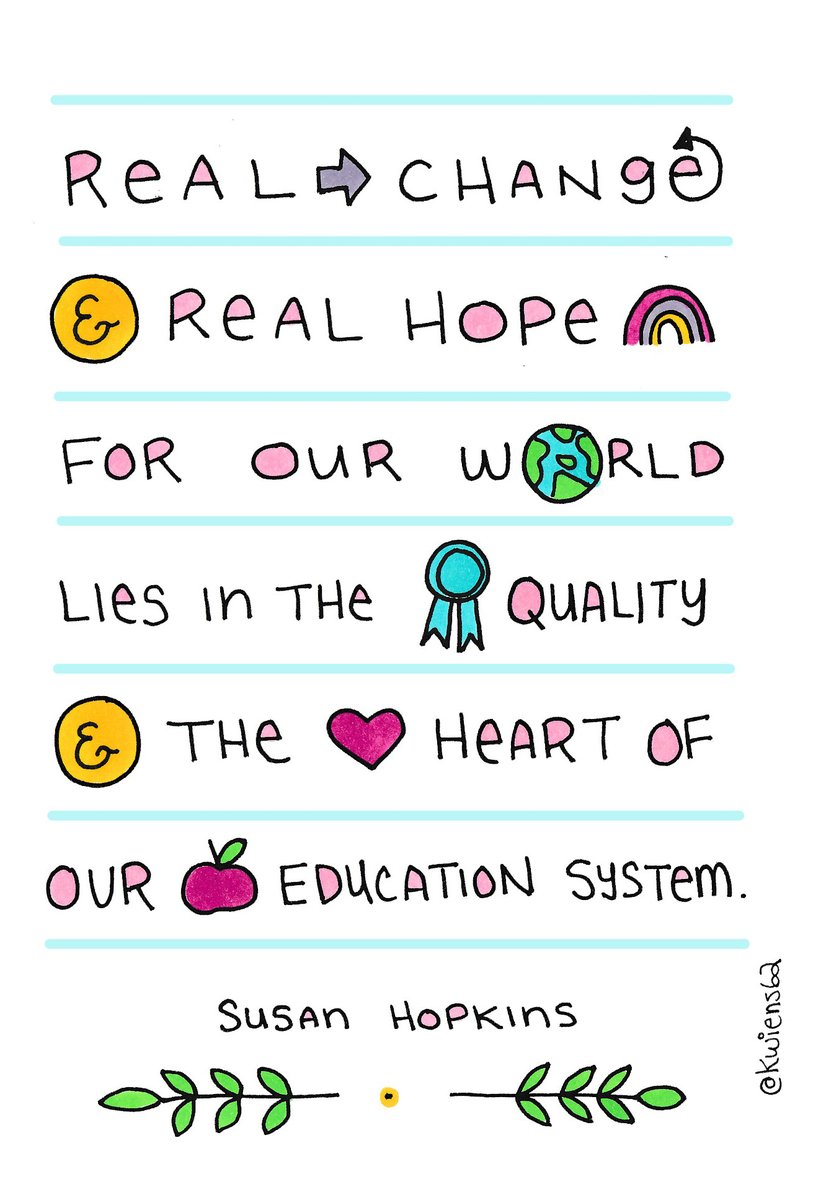 ReAL CHANge
& ReAL HOPe
FOR OUR WORLD
LIeS in THe QUALITY
& THe HeART OF
OUR EDUCATION SYSTem.
SUSAn HOPKinS
@kwiens62